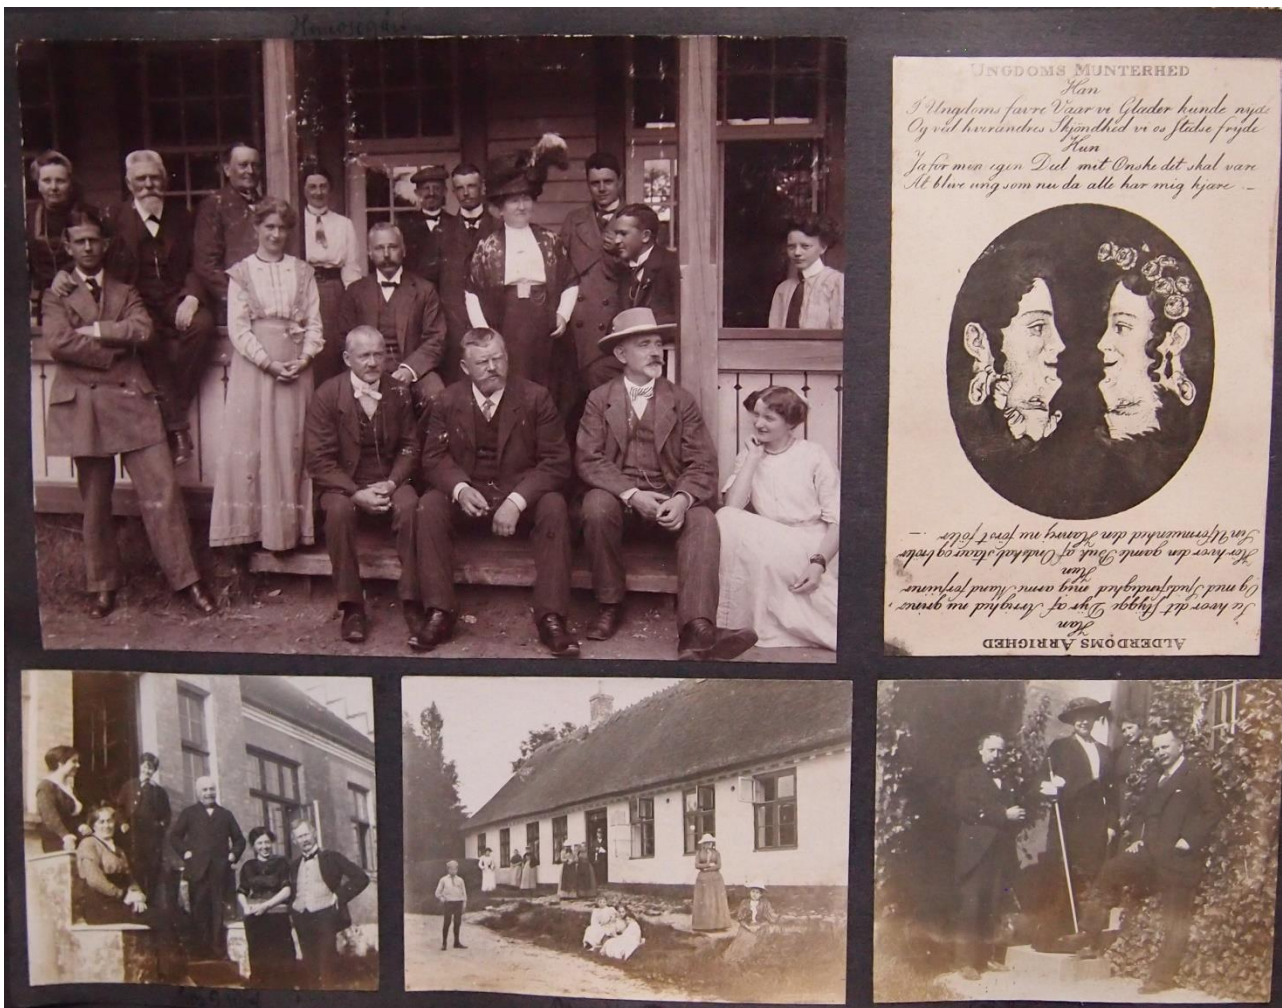 UNGDOMS MUNTERHED
Han
I Ungdoms favre Vaar vi Glæder kunde nyde
Og ved hverandres Skjøndhed vi os stedse fryde
Hun
Ja for min egen Deel mit Ønske det skal være
At blive ung som nu da alle har mig kjære –
ALDERDOMS ARRIGHED
Han
Se hvor det stygge Dyr af Arrighed nu griner,
Og med Spidsfindighed mig arme Mand forpiner
Hun
Hør hvor den gamle Buk af Ondskab staar og brøler
Sin Uformuenhed den Hanrey nu først føler –